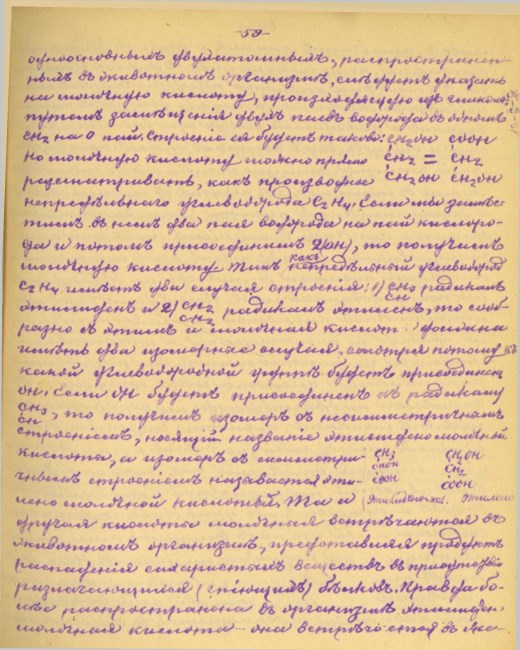 -59-
одноосновнымъ двухатомнымъ, распространен-
нымъ въ животномъ организмѣ, слѣдуетъ указать
на молочную кислоту, происходящую изъ гликоля
путемъ замѣщенія двухъ паевъ водорода въ одномъ
CH2 на O пай. Строеніе ея будетъ таково: CH2OH COOH
Но молочную кислоту можно прямо CH2 = CH2
разсматривать, какъ производное CH2OH CH2OH
непредѣльнаго углеводорода C2H4. Если мы замѣс-
тимъ въ немъ два пая водорода на пай кислоро-
да и потомъ присоединимъ 2(OH), то получимъ
молочную кислоту. Такъ какъ непредѣльный углеводородъ
C2H4 имѣетъ два случая строенія: 1) CH3 CH радикалъ
этилиденъ и 2) CH2 CH2 радикалъ этиленъ, то сооб-
разно съ этимъ и молочная кислота должна
имѣть два изомерныхъ случая, смотря потому къ
какой углеводородной группѣ будетъ присоединенъ
OH. Если OH будетъ присоединенъ къ радикалу
CH3 CH, то получимъ изомеръ съ несимметричнымъ
строеніемъ, носящій названіе этилиденомолочной
кислоты, а изомеръ съ симметри- CH3 CH2OH
чнымъ строеніемъ называется эти- CHOH CH2
лено молочной кислотой. Та и COOH COOH
другая кислота молочная встрѣчаются въ
животномъ организмѣ, представляя продуктъ
распаденія сахаристыхъ веществъ въ присутствіи
разлагающихся (гніющихъ) бѣлковъ. Правда бо-
лѣе распространена въ организмѣ этилиден-
молочная кислота - она встрѣчается въ